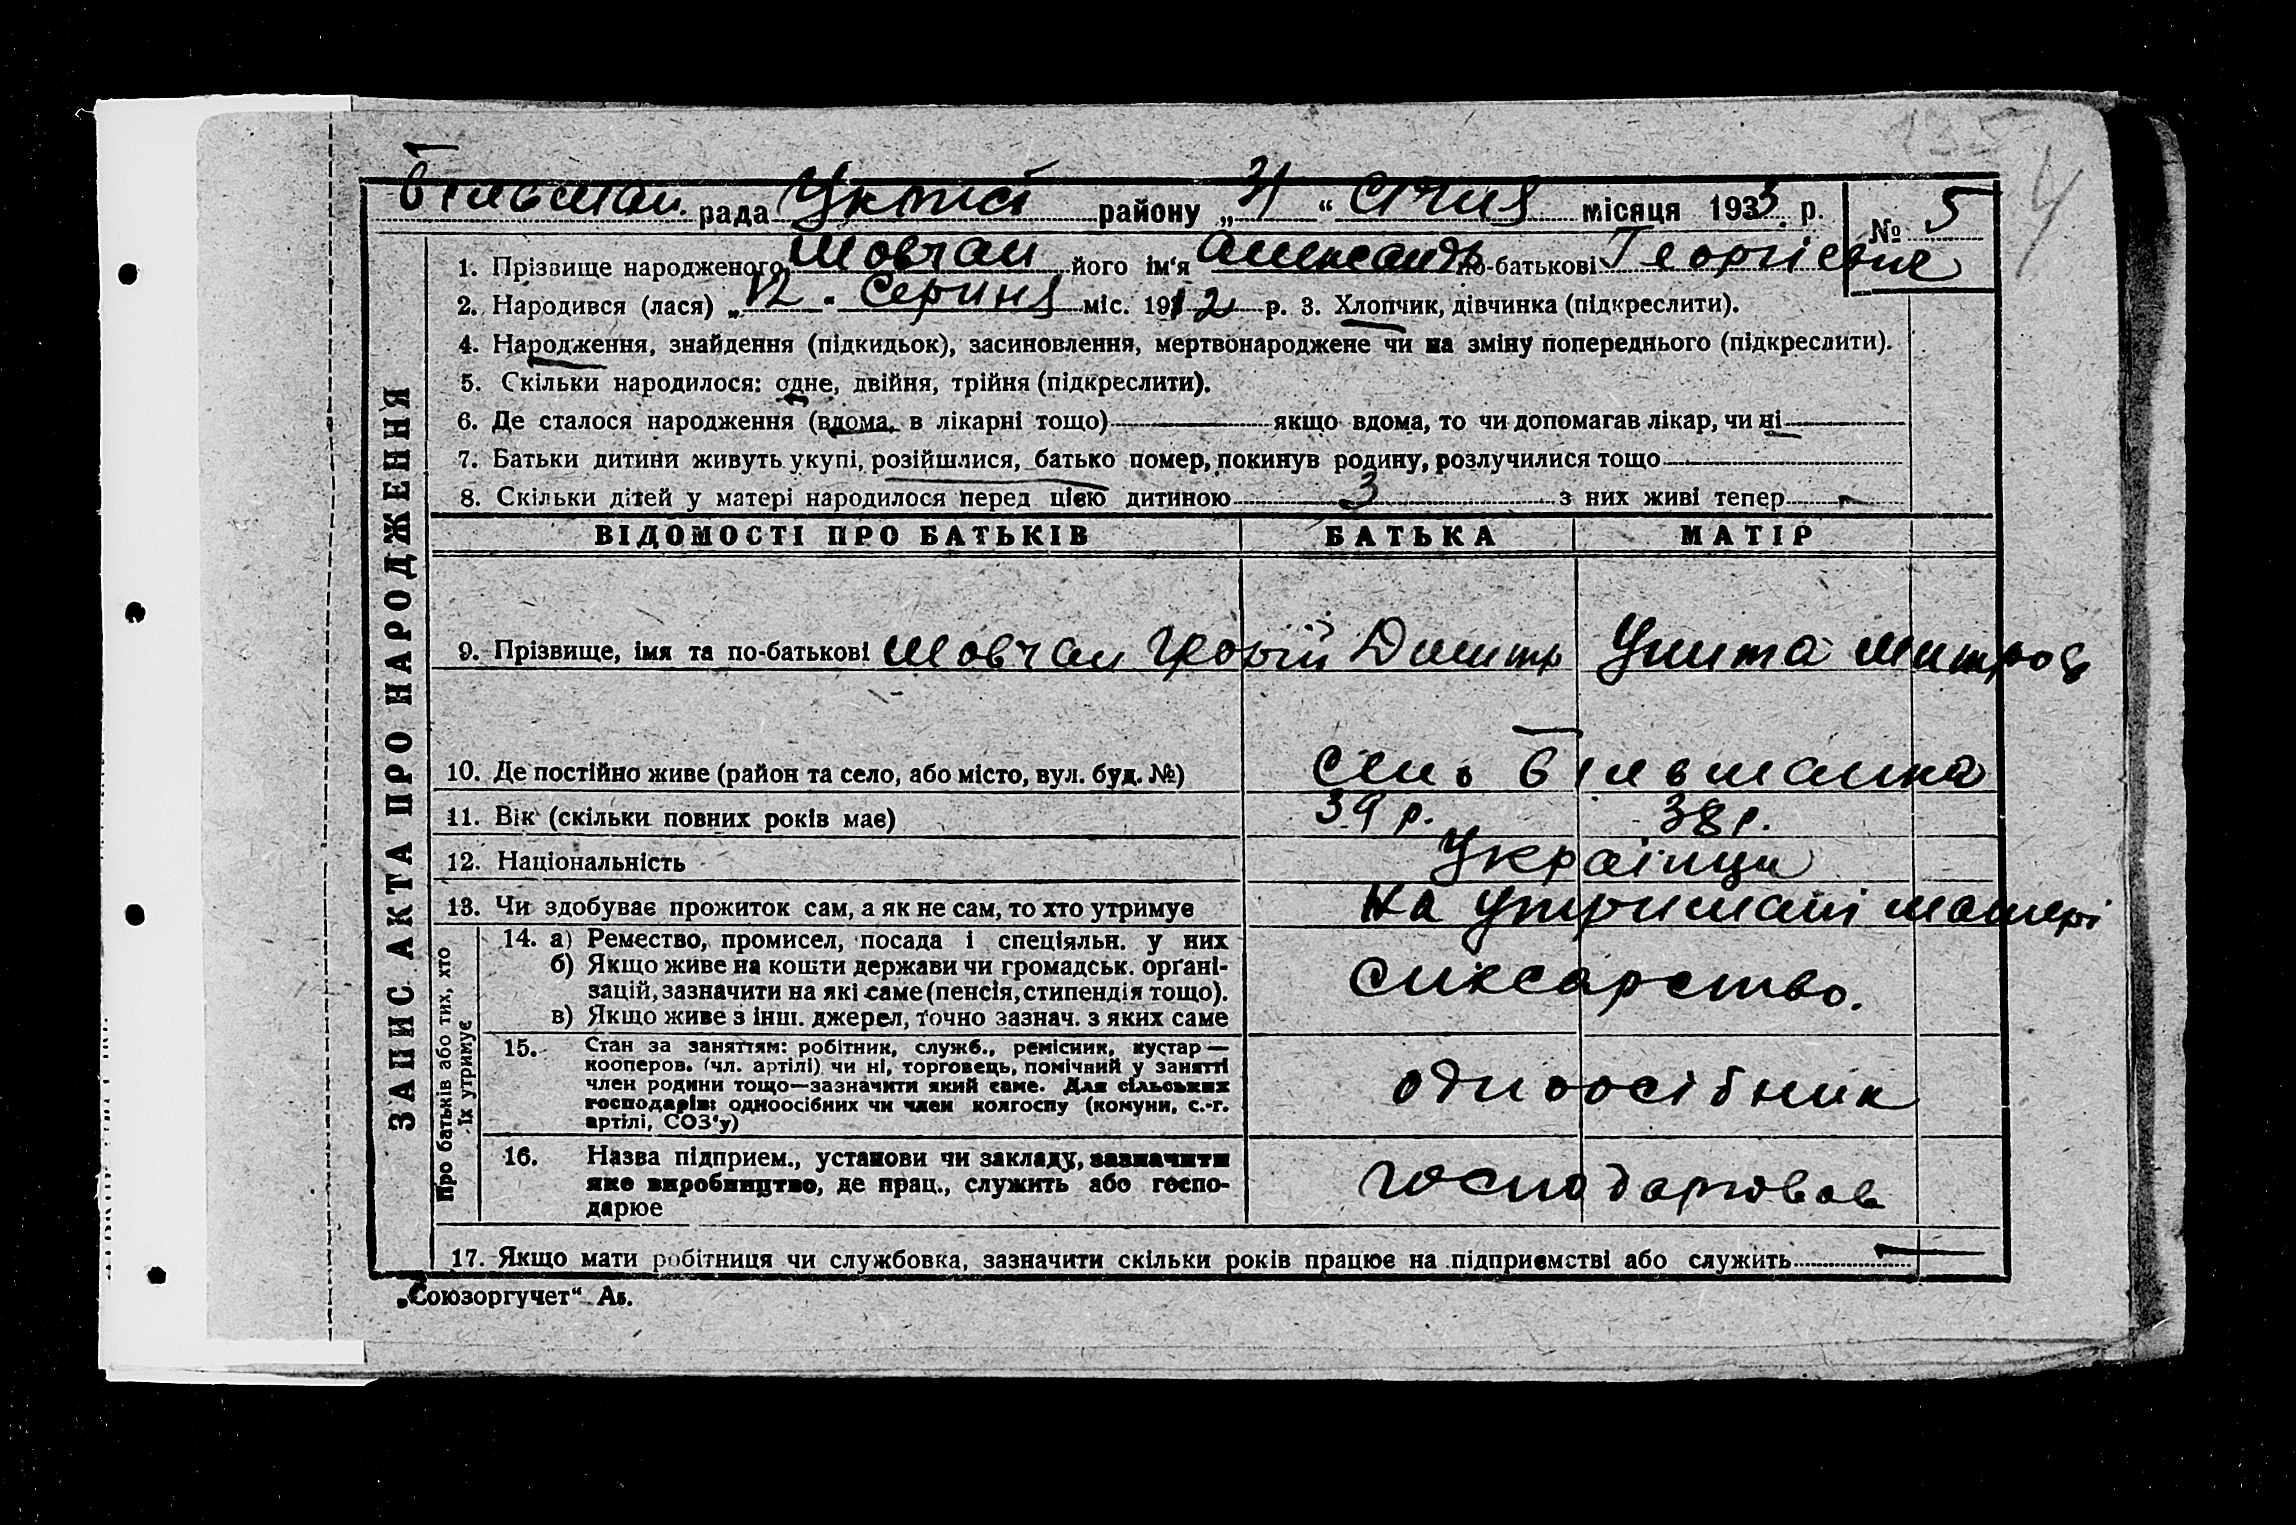 135 4
Вільшан. рада району „31“ Січня місяця 1933 р. № 5
1. Прізвище народженого Шовчан його ім'я Александр по-батькові Георгієвич
2. Народився (лася) „12 Серпня міс. 1912 р. 3. Хлопчик, дівчинка (підкреслити).
4. Народження, знайдення (підкидьок), засиновлення, мертвонароджене чи на зміну попереднього (підкреслити).
5. Скільки народилося: одне, двійня, трійня (підкреслити).
6. Де сталося народження (вдома, в лікарні тощо) якщо вдома, то чи допомагав лікар, чи ні
7. Батьки дитини живуть укупі, розійшлися, батько помер, покинув родину, розлучилися тощо
8. Скільки дітей у матері народилося перед цією дитиною 3 з них живі тепер –
ЗАПИС АКТА ПРО НАРОДЖЕННЯ
ВІДОМОСТІ ПРО БАТЬКІВ БАТЬКА МАТІР
9. Прізвище, імя та по-батькові Шовчан Димитр Улита Митроф
10. Де постійно живе (район та село, або місто, вул. буд. №) Село Вільшанка
11. Вік (скільки повних років має) 39 р. 38 р.
12. Національність Українці
13. Чи здобуває прожиток сам, а як не сам, то хто утримує На утримані матері
Про батьків або тих, хто
їх утримує
14. а) Ремество, промисел, посада і спеціяльн. у них
б) Якщо живе на кошти держави чи громадськ. орґані-
зацій, зазначити на які саме (пенсія, стипендія тощо).
в) Якщо живе з інш. джерел, точно зазнач. з яких саме
15. Стан за заняттям: робітник, служб., ремісник, кустар—
кооперов. (чл. артілі) чи ні, торговець, помічний у занятті
член родини тощо—зазначити який саме. Для сільських
господарів: одноосібних чи член колгоспу (комуни, с.-г.
артілі, СОЗ'у)
одноосібник
16. Назва підприєм., установи чи закладу, зазначити
яке виробництво, де прац., служить або госпо-
дарює
господарював
17. Якщо мати робітниця чи службовка, зазначити скільки років працює на підприємстві або служить –
„Союзоргучет“ Ав.